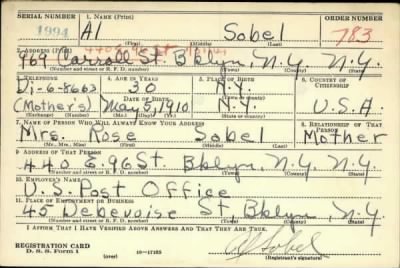 SERIAL NUMBER 1. NAME (Print) ORDER NUMBER
1994 Al Sobel 783
2. ADDRESS (Print)
969 Carroll St. B'klyn, N.Y. N.Y.
(Number and street or R. F. D. number) (Town) (County) (State)
3. TELEPHONE 4. AGE IN YEARS 5. PLACE OF BIRTH 6. COUNTRY OF CITIZENSHIP
Di-6-8663 30 N.Y.
DATE OF BIRTH
(Mother's) May 5, 1910 N.Y. U.S.A.
(Exchange) (Number) (Mo.) (Day) (Yr.) (State or country)
7. NAME OF PERSON WHO WILL ALWAYS KNOW YOUR ADDRESS 8. RELATIONSHIP OF THAT PERSON
Mrs. Rose Sobel Mother
(Mr., Mrs., Miss) (First) (Middle) (Last)
9. ADDRESS OF THAT PERSON
440 E. 96 St. Bklyn, N.Y. N.Y.
(Number and street or R. F. D. number) (Town) (County) (State)
10. EMPLOYER'S NAME
U.S. Post Office
11. PLACE OF EMPLOYMENT OR BUSINESS
45 Debevoise St, Bklyn, N.Y.
(Number and street or R. F. D. number) (Town) (County) (State)
I AFFIRM THAT I HAVE VERIFIED ABOVE ANSWERS AND THAT THEY ARE TRUE.
REGISTRATION CARD
D. S. S. Form 1 (over) 16—17105 Al Sobel
(Registrant's signature)